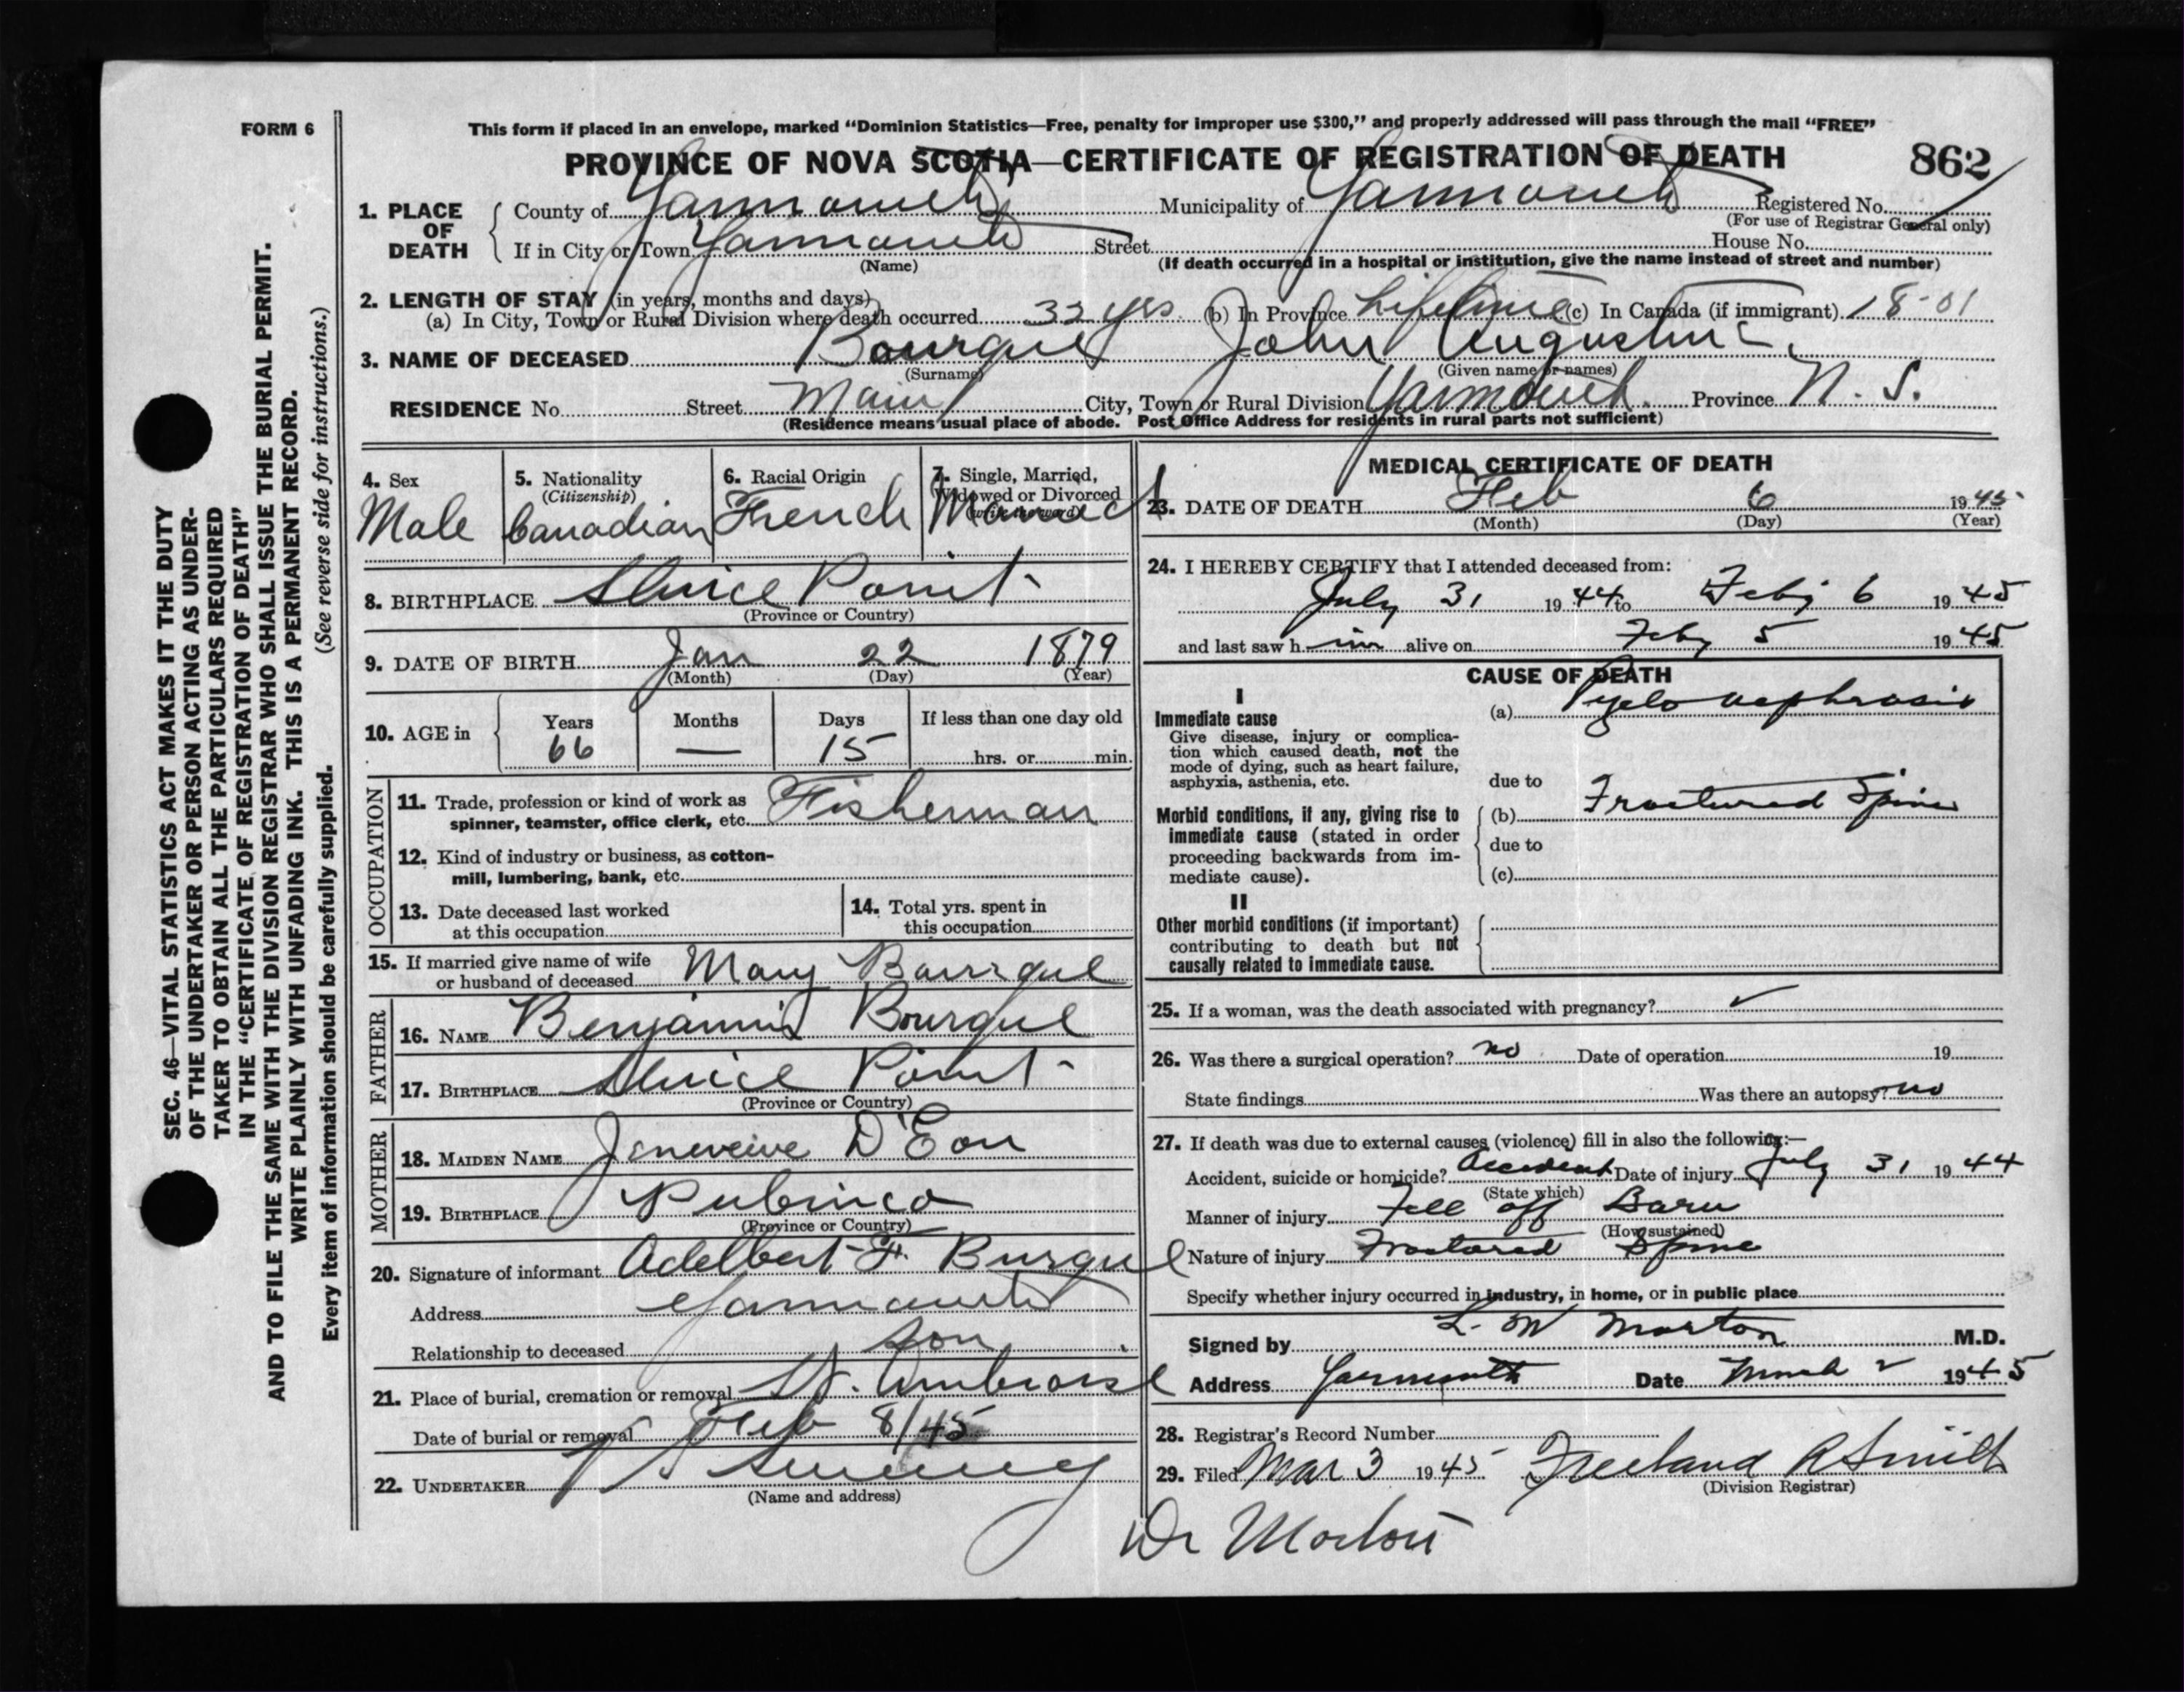 FORM 6
This form if placed in an envelope, marked “Dominion Statistics—Free, penalty for improper use $300,” and properly addressed will pass through the mail “FREE”
PROVINCE OF NOVA SCOTIA—CERTIFICATE OF REGISTRATION OF DEATH 862
1. PLACE OF DEATH County of Yarmouth Municipality of Yarmouth Registered No.
(For use of Registrar General only)
If in City or Town Yarmouth Street House No.
(Name) (If death occurred in a hospital or institution, give the name instead of street and number)
2. LENGTH OF STAY (in years, months and days)
(a) In City, Town or Rural Division where death occurred 32 yrs (b) In Province Lifetime (c) In Canada (if immigrant) 18-01
3. NAME OF DECEASED Bourque John Augustin
(Surname) (Given name or names)
RESIDENCE No. Street Main City, Town or Rural Division Yarmouth Province N. S.
(Residence means usual place of abode. Post Office Address for residents in rural parts not sufficient)
4. Sex
Male
5. Nationality
(Citizenship)
Canadian
6. Racial Origin
French
7. Single, Married,
Widowed or Divorced
(write the word)
Married
8. BIRTHPLACE Sluice Point
(Province or Country)
9. DATE OF BIRTH Jan 22 1879
(Month) (Day) (Year)
10. AGE in Years Months Days If less than one day old
66 — 15 hrs. or min.
OCCUPATION
11. Trade, profession or kind of work as
spinner, teamster, office clerk, etc. Fisherman
12. Kind of industry or business, as cotton-
mill, lumbering, bank, etc.
13. Date deceased last worked
at this occupation
14. Total yrs. spent in
this occupation
15. If married give name of wife
or husband of deceased Mary Bourque
FATHER
16. NAME Benjamin Bourque
17. BIRTHPLACE Sluice Point
(Province or Country)
MOTHER
18. MAIDEN NAME Jeneveive D'Eon
19. BIRTHPLACE Pubnico
(Province or Country)
20. Signature of informant Adelbert F. Burque
Address Yarmouth
Relationship to deceased son
21. Place of burial, cremation or removal St. Ambroise
Date of burial or removal Feb 8/45
22. UNDERTAKER V S Sweeny
(Name and address)
MEDICAL CERTIFICATE OF DEATH
23. DATE OF DEATH Feb 6 1945
(Month) (Day) (Year)
24. I HEREBY CERTIFY that I attended deceased from:
July 31 1944 to Feby 6 1945
and last saw h im alive on Feby 5 1945
CAUSE OF DEATH
I
Immediate cause
Give disease, injury or complica-
tion which caused death, not the
mode of dying, such as heart failure,
asphyxia, asthenia, etc.
(a) Pyelo nephrosis
due to
Morbid conditions, if any, giving rise to
immediate cause (stated in order
proceeding backwards from im-
mediate cause).
(b) Fractured Spine
due to
(c)
II
Other morbid conditions (if important)
contributing to death but not
causally related to immediate cause.
25. If a woman, was the death associated with pregnancy? ✓
26. Was there a surgical operation? no Date of operation 19
State findings Was there an autopsy? no
27. If death was due to external causes (violence) fill in also the following:—
Accident, suicide or homicide? Accident Date of injury July 31 1944
(State which)
Manner of injury Fell off Barn
(How sustained)
Nature of injury Fractured Spine
Specify whether injury occurred in industry, in home, or in public place
Signed by L. M Morton M.D.
Address Yarmouth Date March 2 1945
28. Registrar's Record Number
29. Filed Mar 3 1945 Freeland R Smith
(Division Registrar)
Dr Morton
SEC. 46—VITAL STATISTICS ACT MAKES IT THE DUTY
OF THE UNDERTAKER OR PERSON ACTING AS UNDER-
TAKER TO OBTAIN ALL THE PARTICULARS REQUIRED
IN THE “CERTIFICATE OF REGISTRATION OF DEATH”
AND TO FILE THE SAME WITH THE DIVISION REGISTRAR WHO SHALL ISSUE THE BURIAL PERMIT.
WRITE PLAINLY WITH UNFADING INK. THIS IS A PERMANENT RECORD.
Every item of information should be carefully supplied. (See reverse side for instructions.)